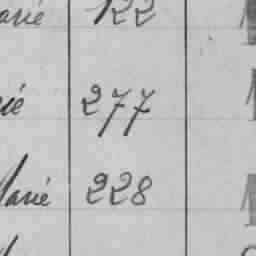 arié 122
ié 277
arié 228